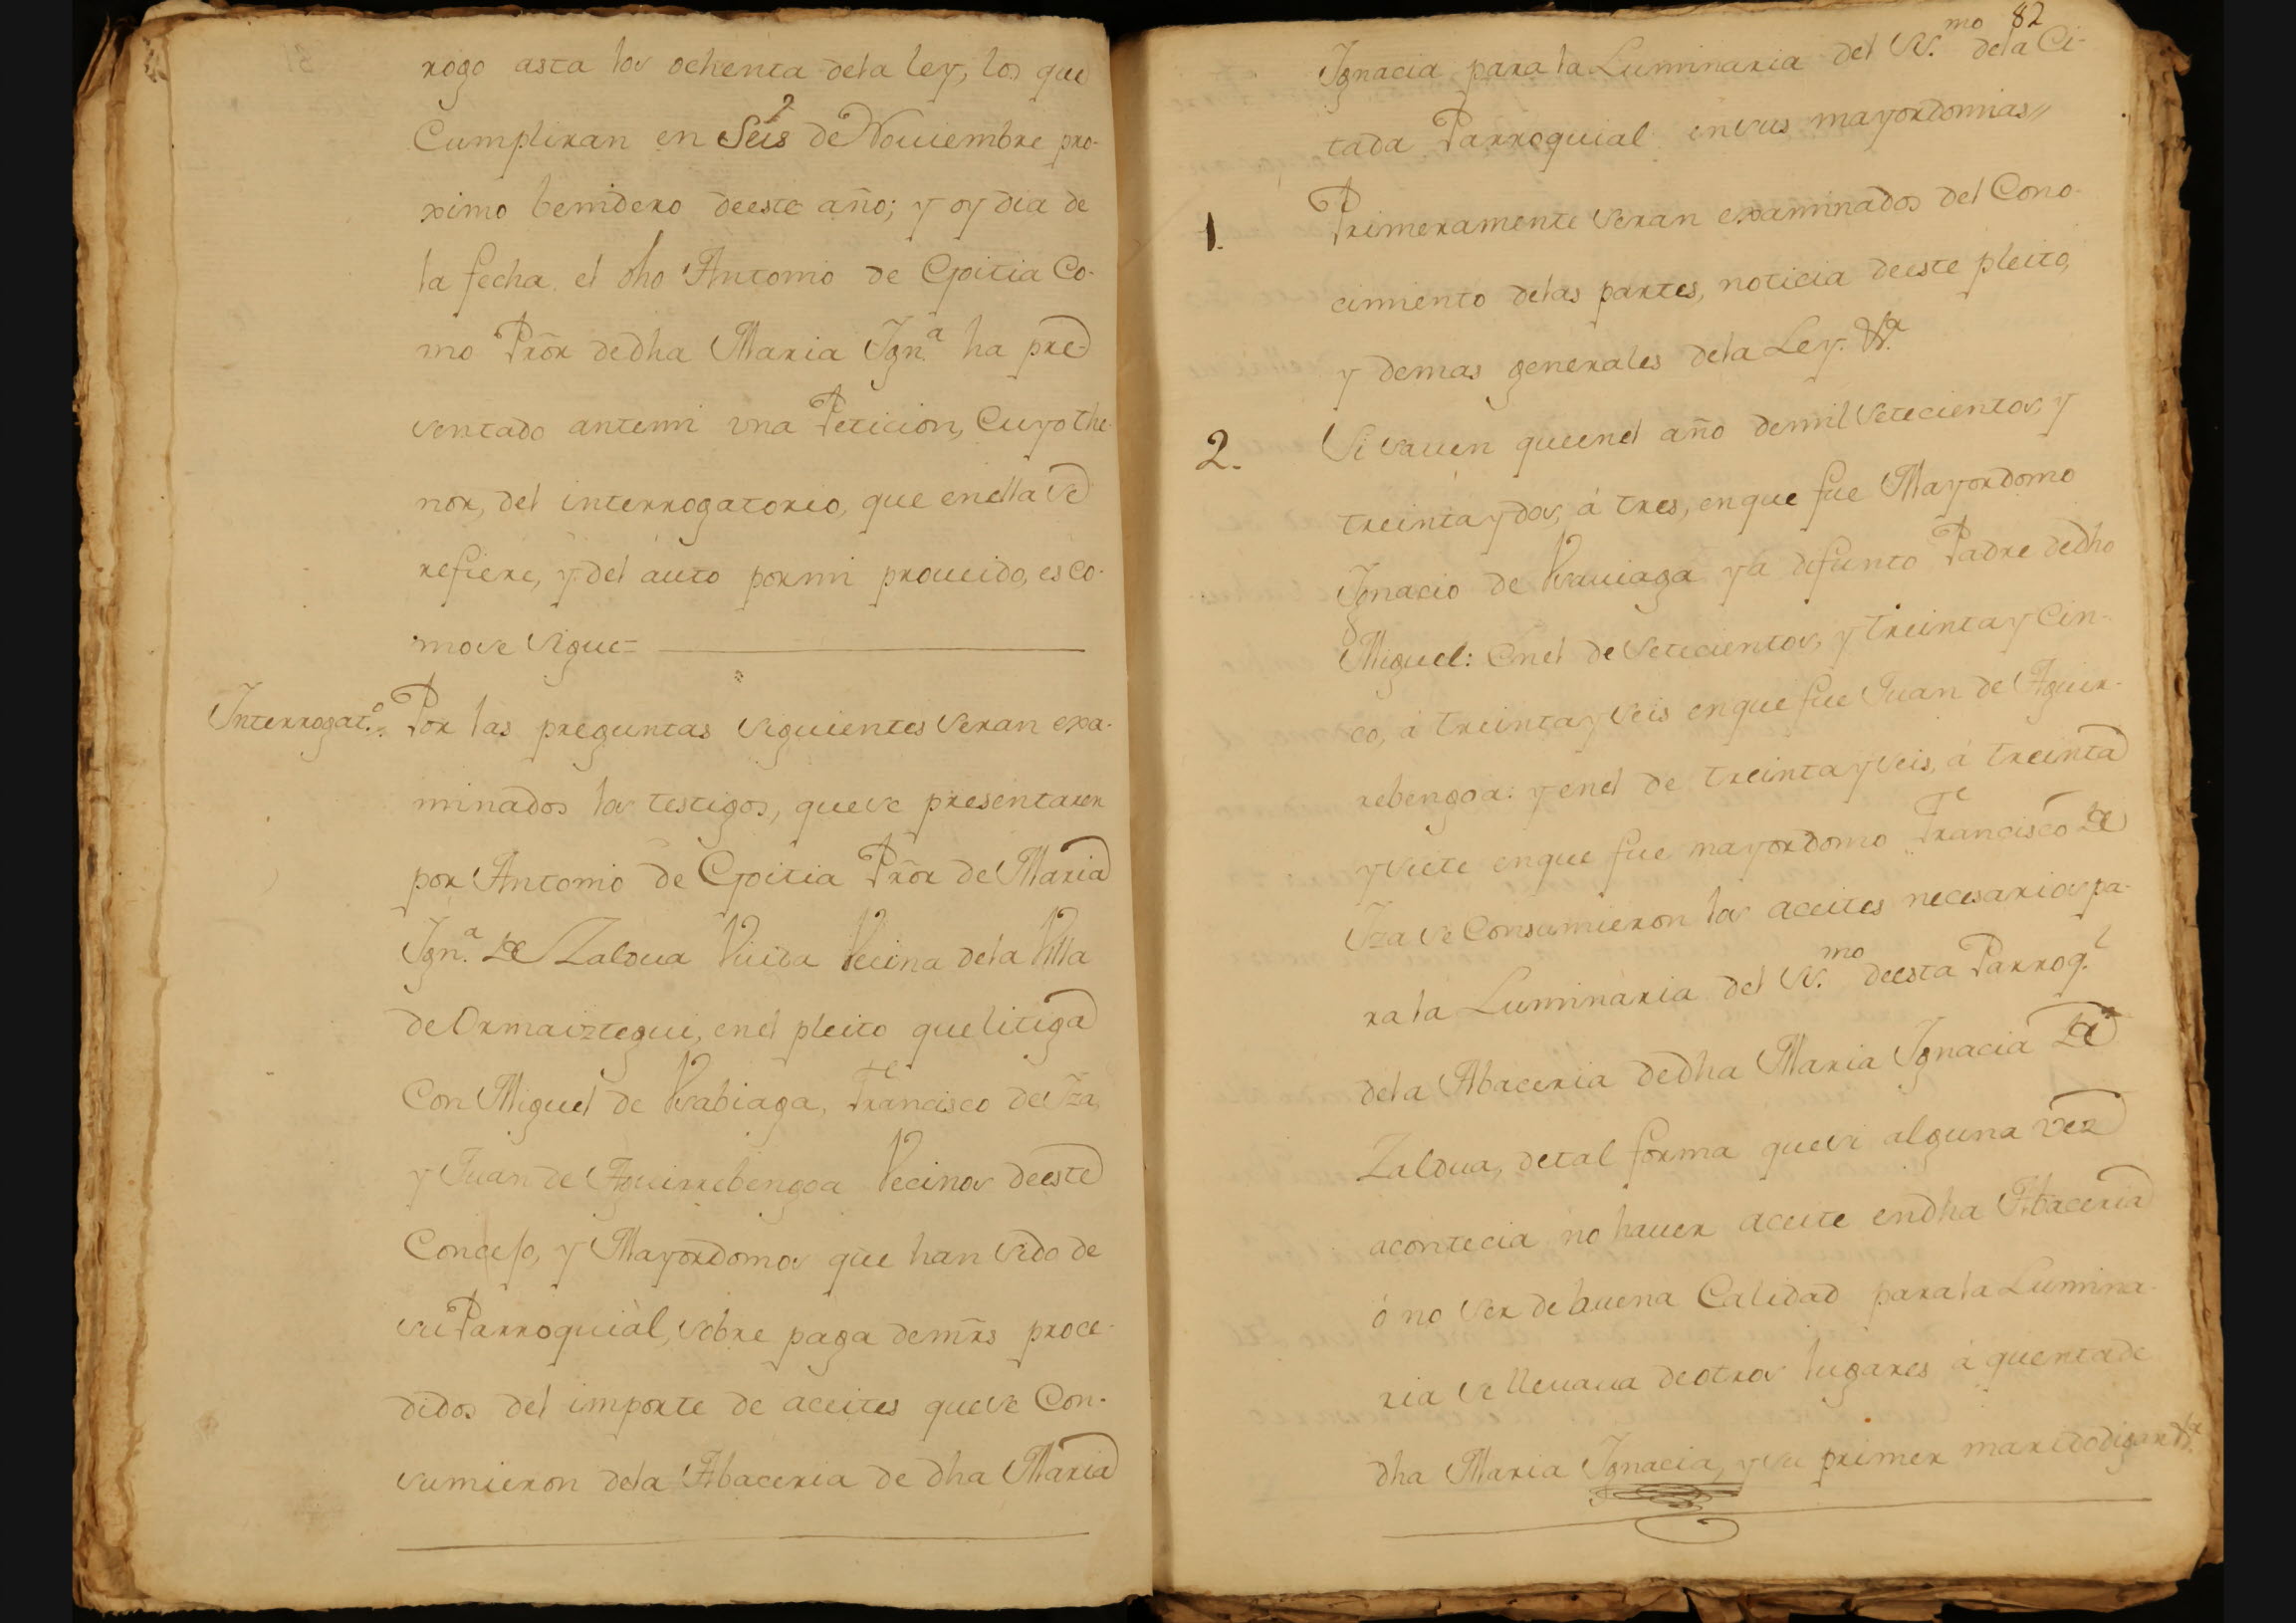 rogo asta los ochenta dela ley, los que
Cumpliran en Seis de Nouiembre pro-
ximo benidero deeste año; y oy dia de
la fecha el dho Antonio de Goitia Co-
mo Prõr dedha Maria Ign.ª ha pre-
sentado antemi vna Peticion, Cuyo the-
nor, del interrogatorio, que enella se
refiere, y del auto pormi proueido, es co-
mose sigue=
Interrogat.º Por las preguntas siguientes seran exa-
minados los testigos, quese presentaren
por Antonio de Goitia Prõr de Maria
Ign.ª de Zaldua Viuda Vecina dela Villa
de Ormaiztegui, enel pleito quelitiga
Con Miguel de Sabiaga, Francisco de Iza,
y Juan de Aguirrebengoa Vecinos deeste
Concejo, y Mayordomos que han sido de
su Parroquial, sobre paga demr̃s proce-
didos del importe de aceites quese Con-
sumieron dela Abaceria de dha Maria
82
Ignacia para la Luminaria del SS.mo dela Ci-
tada Parroquial ensus mayordomias//
1. Primeramente seran examinados del Cono-
cimiento delas partes, noticia deeste pleito,
y demas generales dela Ley. &ª
2. Si sauen queenel año demil setecientos, y
treinta y dos, á tres, enque fue Mayordomo
Ignacio de Sauiaga ya difunto Padre dedho
Miguel: Enel de setecientos, y treinta y Cin-
co, á treinta y seis enque fue Juan de Aguir-
rebengoa: y enel de treinta y seis, á treinta
y siete enque fue mayordomo Francisco de
Iza se Consumieron los aceites necesarios pa-
ra la Luminaria del SS.mo deesta Parroq.l
dela Abaceria dedha Maria Ignacia de
Zaldua, detal forma quesi alguna vez
acontecia no hauer aceite endha Abaceria
ó no ser de buena Calidad parala Lumina-
ria se lleuaua deotros lugares á quentade
dha Maria Ignacia, y su primer marido digan &ª